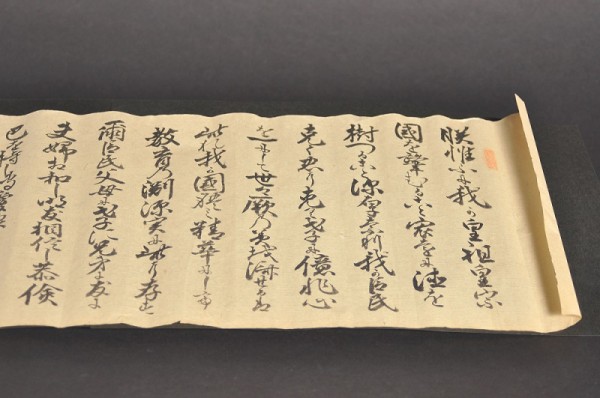 朕惟ふに我か皇祖皇宗
國を肇むること宏遠に徳を
樹つること深厚なり我臣民
克く忠に克く孝に億兆心
を一にして世々厥の美を済せるは
此れ我か國體の精華にして
教育の渕源実に此に存す
爾臣民父母に孝に兄弟に友に
夫婦相和し朋友相信し恭倹